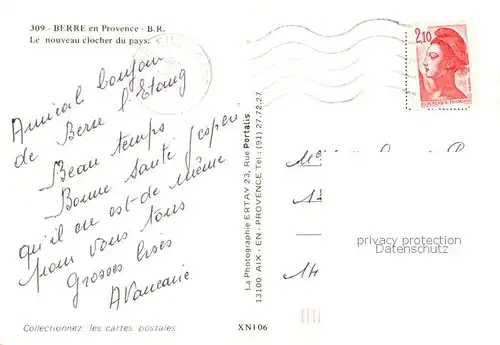 309 - BERRE en Provence - B.R.
Le nouveau clocher du pays.
Amical bonjour
de Berre l'Etang
Beau temps
Bonne Santé j'espère
qu'il en est-de même
pour vous tous
Grosses bises
La Photographie ERTAY 23, Rue Portalis
13100 AIX - EN - PROVENCE Tel : (91) 27.72.27
2,10
REPUBLIQUE FRANÇAISE
privacy protection
Datenschutz
14
Collectionnez les cartes postales
XN106